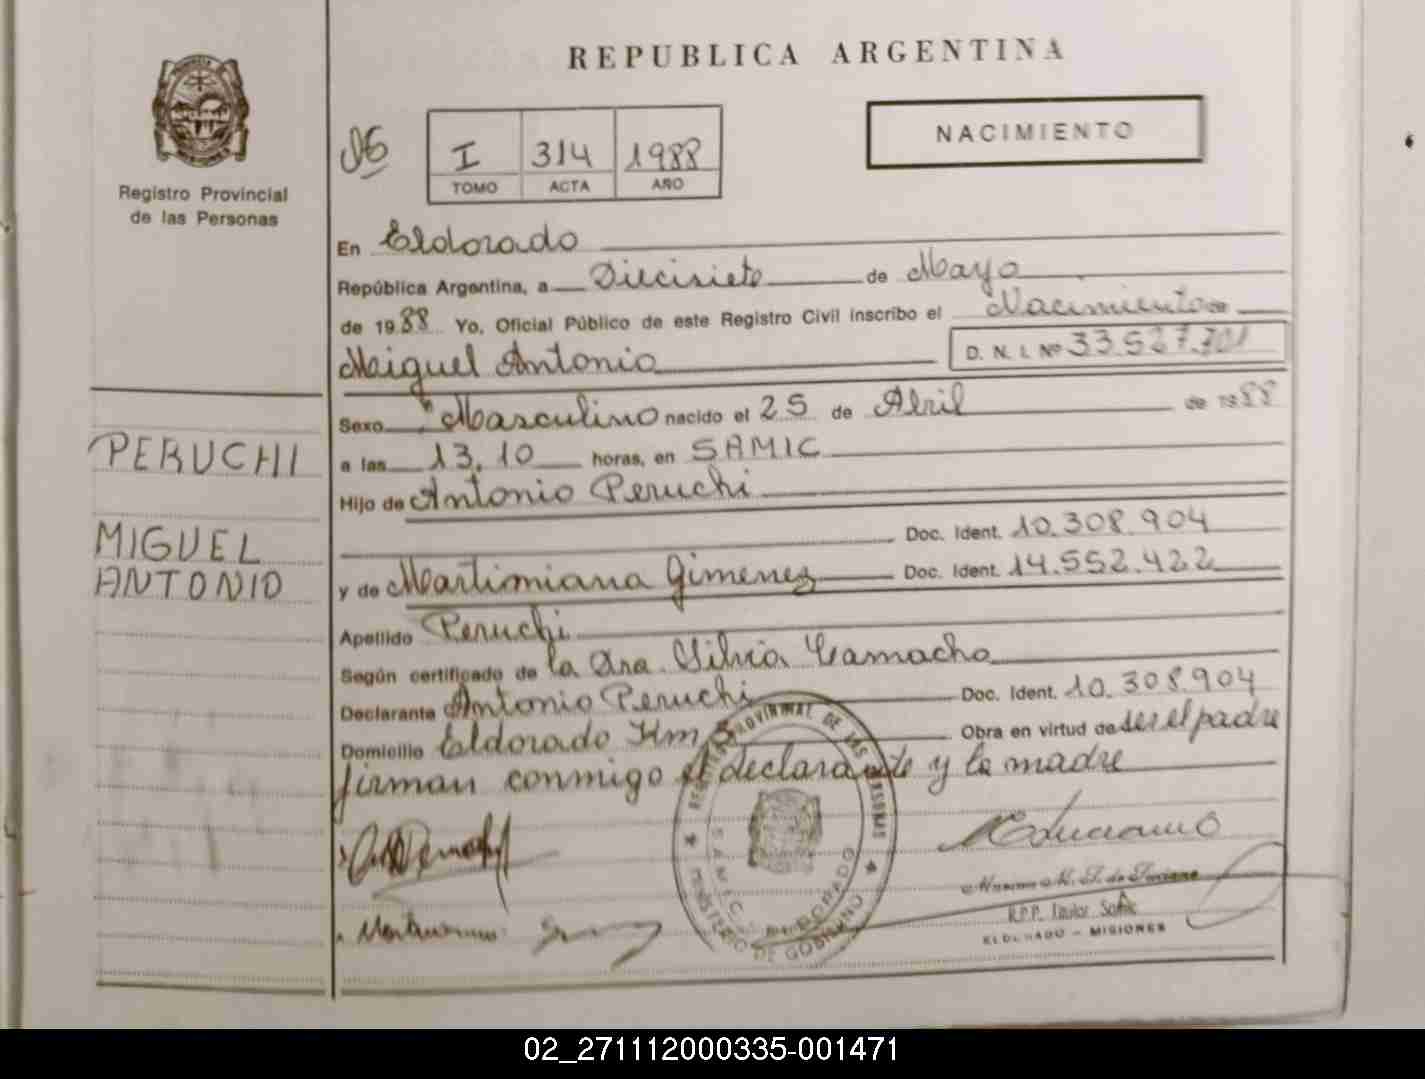 REPUBLICA ARGENTINA
Registro Provincial
de las Personas
I 314 1988
TOMO ACTA AÑO
NACIMIENTO
En Eldorado
República Argentina, a Diecisiete de Mayo
de 1988 Yo, Oficial Público de este Registro Civil inscribo el Nacimiento de
Miguel Antonio D. N. I. Nº 33.527.701
Sexo Masculino nacido el 25 de Abril de 1988
a las 13,10 horas, en SAMIC
Hijo de Antonio Peruchi
Doc. Ident. 10.308.904
y de Martimiana Gimenez Doc. Ident. 14.552.422
Apellido Peruchi
Según certificado de la Dra. Silvia Camacho
Declarante Antonio Peruchi Doc. Ident. 10.308.904
Domicilio Eldorado Km Obra en virtud de ser el padre
firman conmigo el declarante y la madre
PERUCHI
MIGUEL
ANTONIO
REGISTRO PROVINCIAL DE LAS PERSONAS
S.A.M.I.C. ELDORADO
MINISTERIO DE GOBIERNO
R.P.P. Titular
ELDORADO - MISIONES
02_271112000335-001471